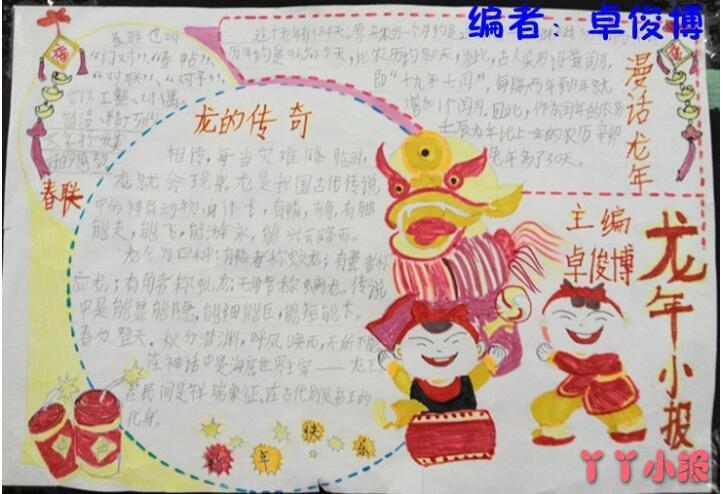 编者：卓俊博
春联也叫
“门对”、“春贴”、
“对联”、“对子”，
它以工整、对偶、
简洁、精巧的
春联
这个龙年有384天。原来农历一个月约是
比农历的多
“十九年七闰”，每隔两年到
增加1个闰月。因此，作为闰年的农历
壬辰龙年比上一年的农历辛卯
兔年多了30天。
漫话龙年
龙的传奇
相传，每当灾难降临时，
龙就会现身。龙是我国古代传说
中的神异动物，身体长，有鳞，有角，有脚
能走，能飞，能游泳，能兴云降雨。
龙分为四种：有鳞者称蛟龙；有翼者称
应龙；有角者称虬龙；无角者称螭龙。传说
中是能显能隐，能细能巨，能短能长。
春分登天，秋分潜渊，呼风唤雨，无所不能
在神话中是海底世界主宰——龙王
在民间是祥瑞象征，在古代则是帝王的
化身。
主编
卓俊博
龙年小报
新年快乐
丫丫小报